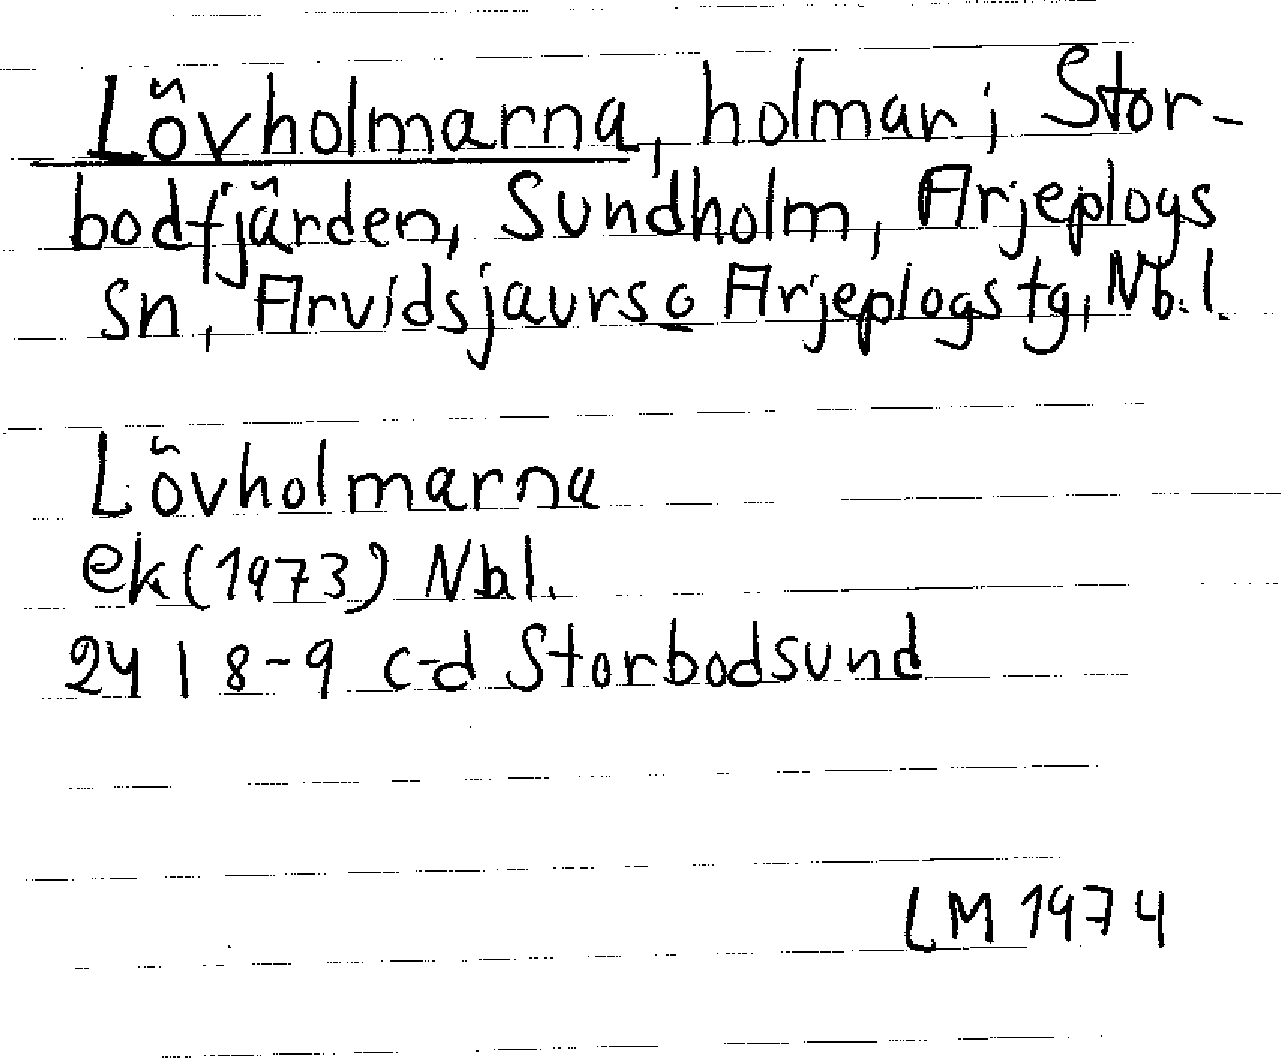 Lövholmarna, holmar i Stor-
bodfjärden, Sundholm, Arjeplogs
sn, Arvidsjaurs o Arjeplogs tg, Nb.l.
Lövholmarna
ek (1973) Nb l.
24 I 8-9 c-d Storbodsund
LM 1974